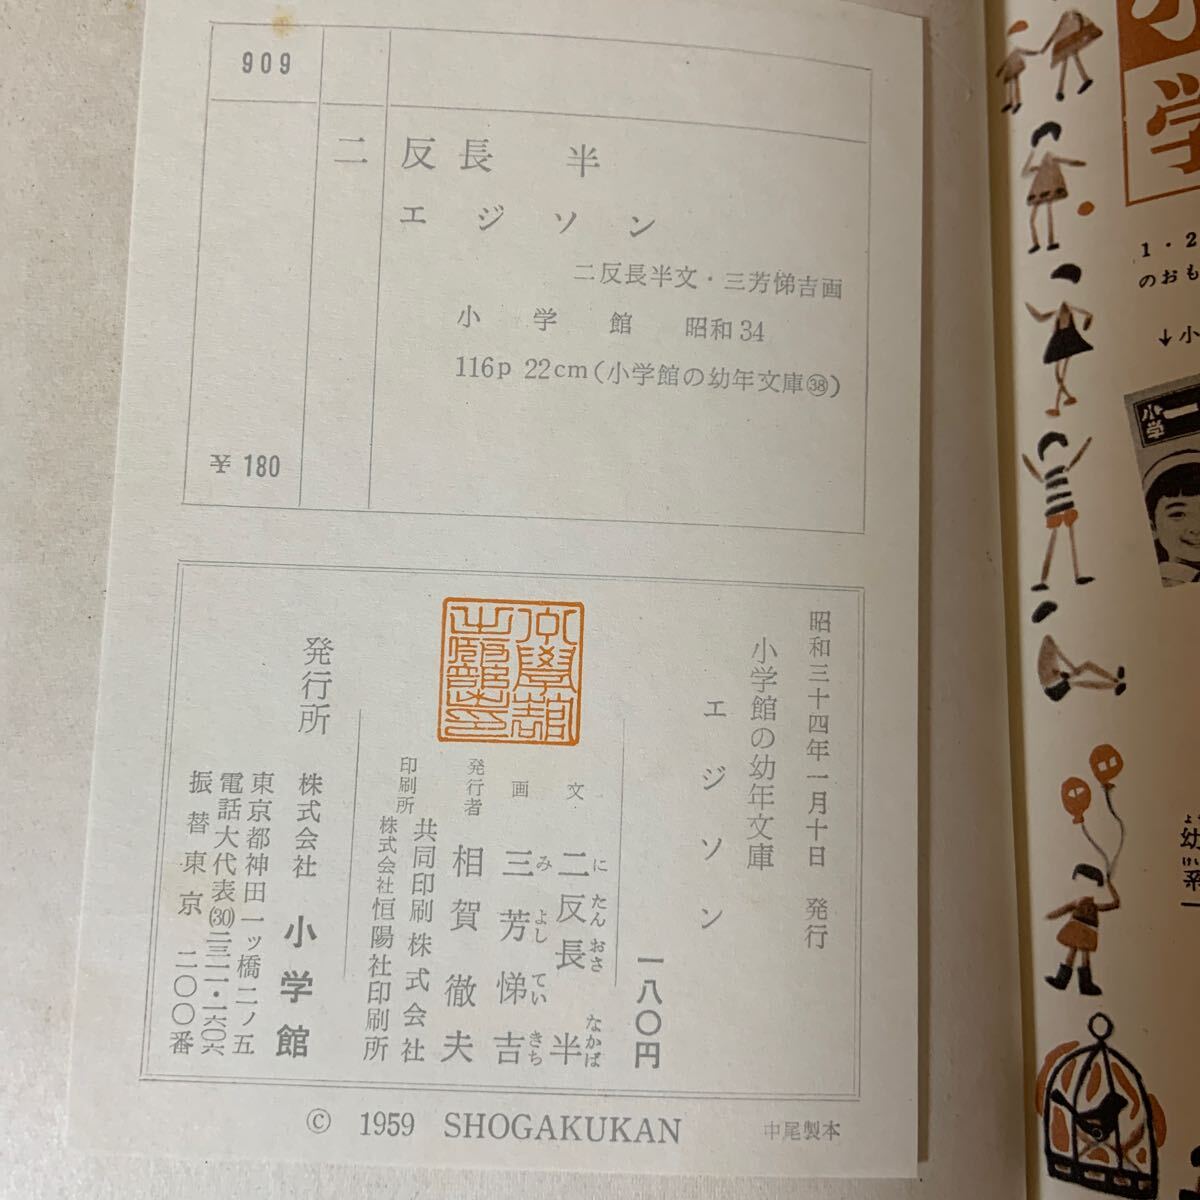 909
二反長 半
エジソン
二反長半文・三芳悌吉画
小学館 昭和34
116p 22cm(小学館の幼年文庫㊳)
¥ 180
昭和三十四年一月十日 発行
小学館の幼年文庫
エジソン
一八〇円
文 二反長 半
にたんおさ なかば
画 三芳悌吉
みよしていきち
発行者 相賀徹夫
印刷所 共同印刷株式会社
株式会社恒陽社印刷所
発行所 株式会社 小学館
東京都神田一ッ橋二ノ五
電話大代表(30)二三二一・一六〇六
振替東京 二〇〇番
© 1959 SHOGAKUKAN
中尾製本
学
1・2
のおも
↓小
小学一